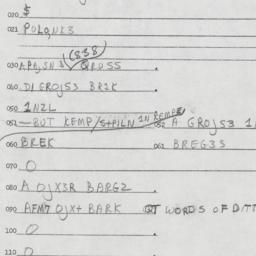 020 $
021 POLQNK3
(838)
030 APA,SN3 QROSS
040 DI GROJ53 BR1K
050 1NZL
051 —BUT KEMP/S+PILN IN REMPE 052 A GROJ53 1
060 BREK 061 BREG3S
070 0
080 A OJX3R BARG2
090 AFM7 OJX+ BARK QT WORDS OF DITT
100 0
110 0